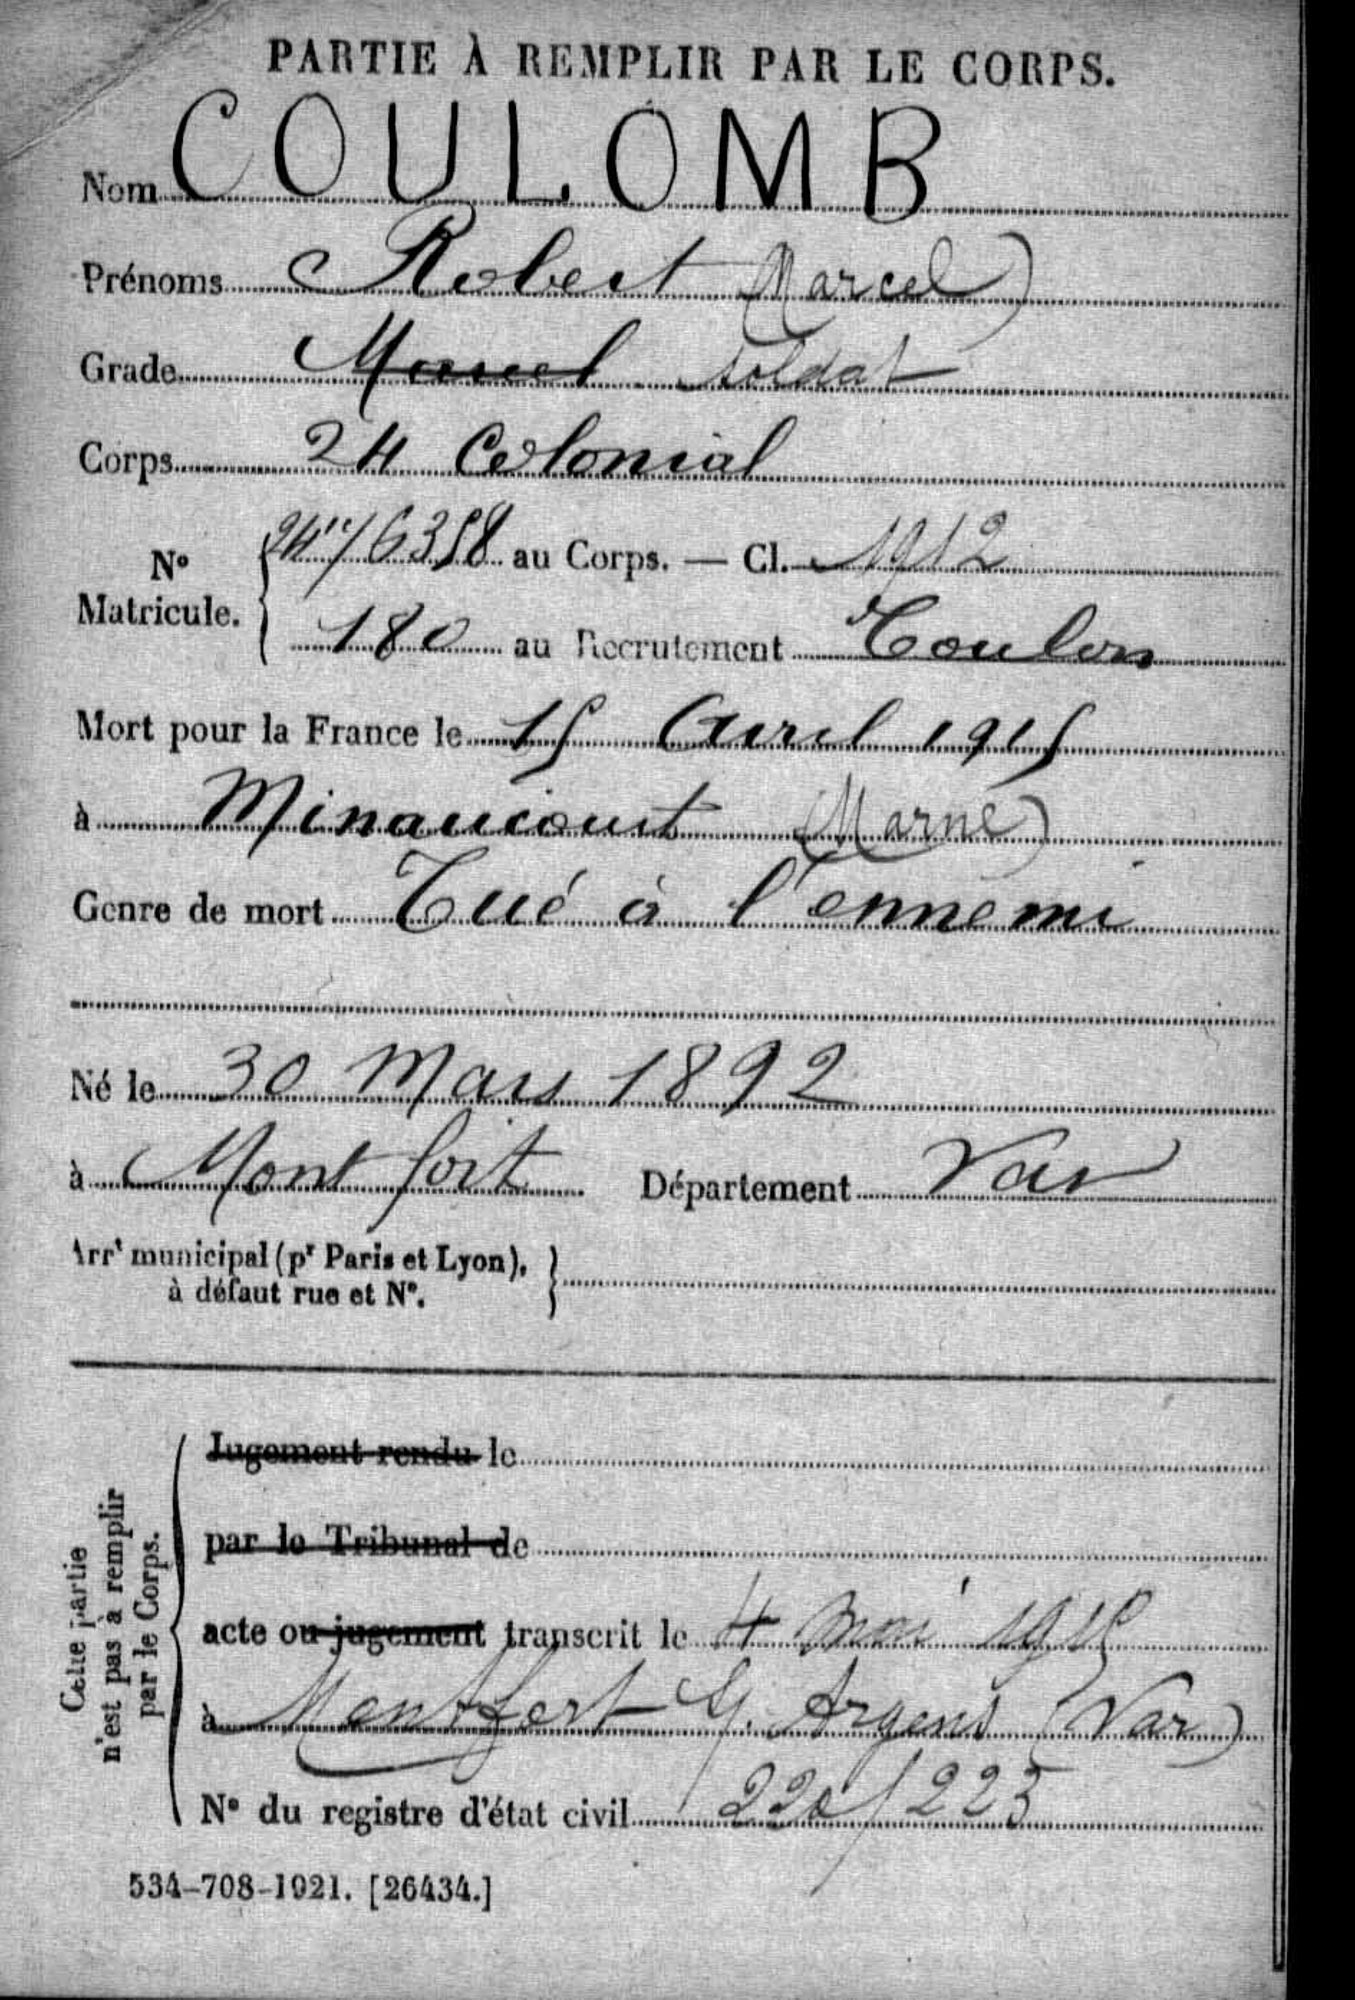 PARTIE À REMPLIR PAR LE CORPS.
Nom COULOMB
Prénoms Robert (Marcel)
Grade Marcel soldat
Corps 24 Colonial
No Matricule. { 6358 au Corps. — Cl. 1912
180 au Recrutement Toulon
Mort pour la France le 15 Avril 1915
à Minaucourt (Marne)
Genre de mort Tué à l'ennemi
Né le 30 Mars 1892
à Montfort Département Var
Arrt municipal (pr Paris et Lyon),
à défaut rue et No.
Cette partie
n'est pas à remplir
par le Corps.
Jugement rendu le
par le Tribunal de
acte ou jugement transcrit le 4 mai 1915
à Montfort s/. Argens (Var)
No du registre d'état civil 220/223
534-708-1921. [26434.]